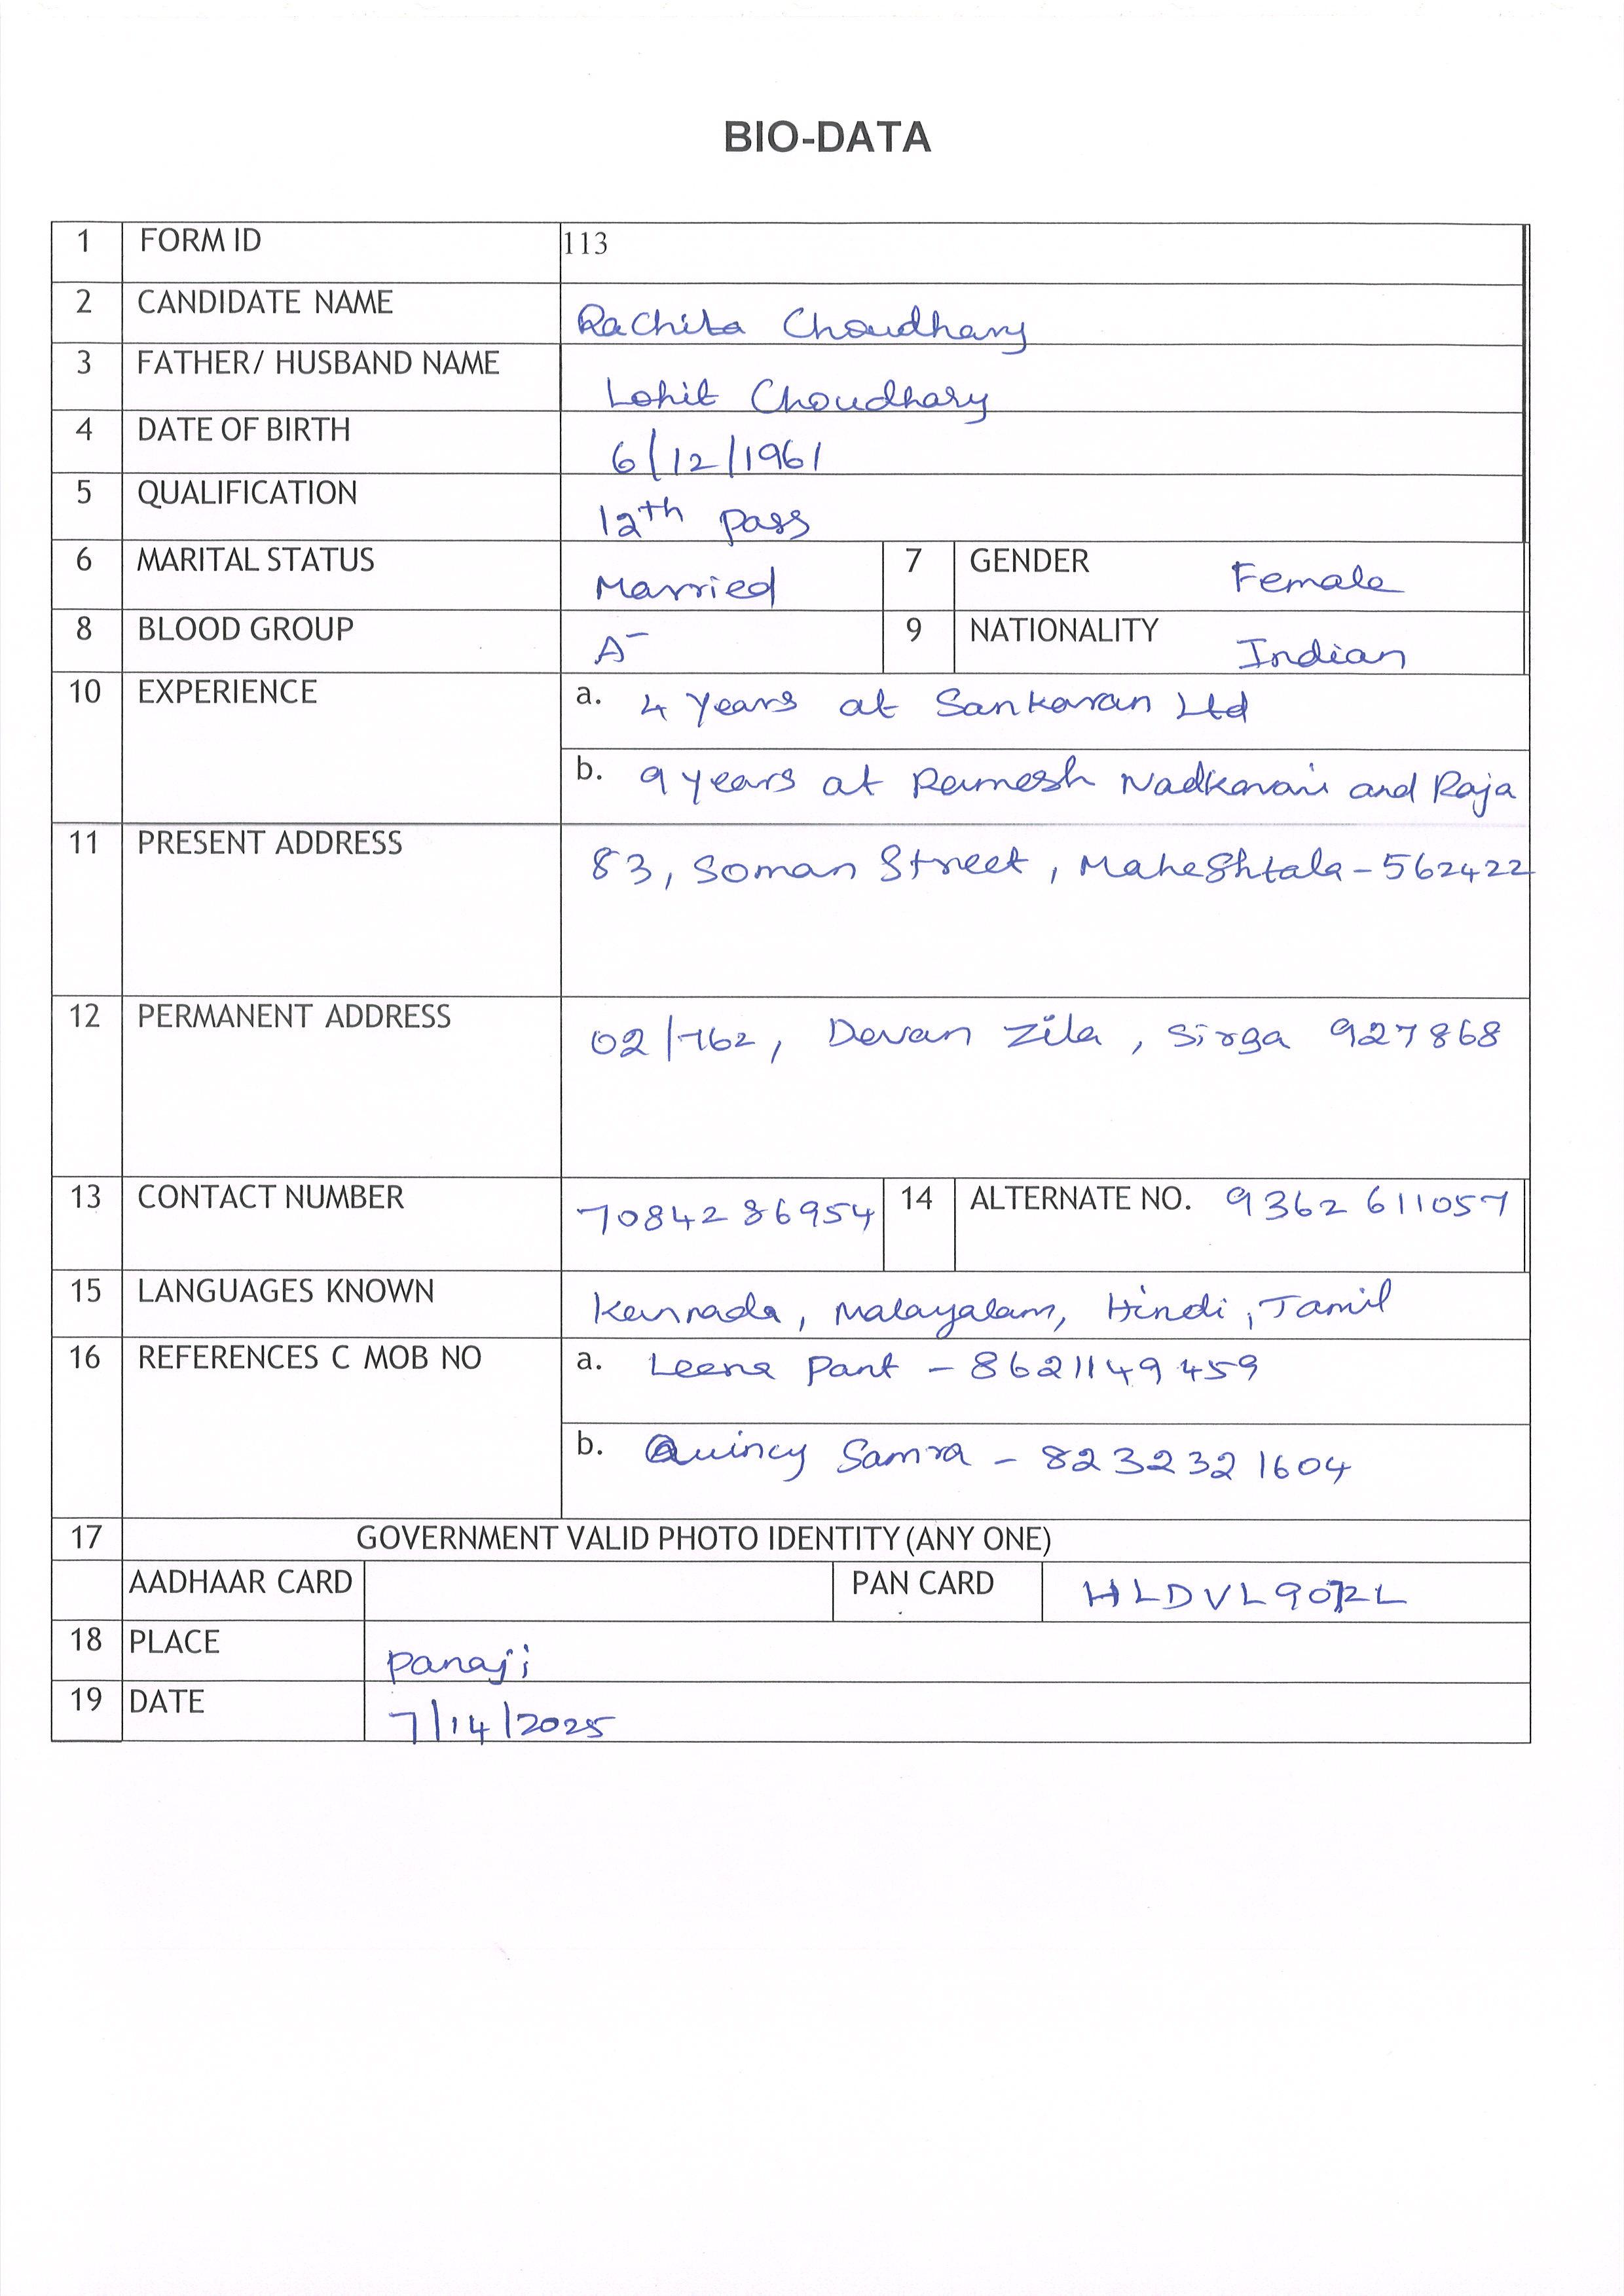 BIO-DATA
1 FORM ID 113
2 CANDIDATE NAME Rachita Choudhary
3 FATHER/ HUSBAND NAME Lohit Choudhary
4 DATE OF BIRTH 6/12/1961
5 QUALIFICATION 12th pass
6 MARITAL STATUS Married 7 GENDER Female
8 BLOOD GROUP A- 9 NATIONALITY Indian
10 EXPERIENCE a. 4 years at Sankaran Ltd
b. 9 years at Ramesh Nadkarni and Raja
11 PRESENT ADDRESS 83, Soman Street, Maheshtala - 562422
12 PERMANENT ADDRESS 02/762, Devan Zila, Sirga 927868
13 CONTACT NUMBER 7084286954 14 ALTERNATE NO. 9362611057
15 LANGUAGES KNOWN Kannada, Malayalam, Hindi, Tamil
16 REFERENCES C MOB NO a. Leena Pant - 8621149459
b. Quincy Samra - 8232321604
17 GOVERNMENT VALID PHOTO IDENTITY (ANY ONE)
AADHAAR CARD PAN CARD
18 PLACE Panaji
19 DATE 7/14/2025